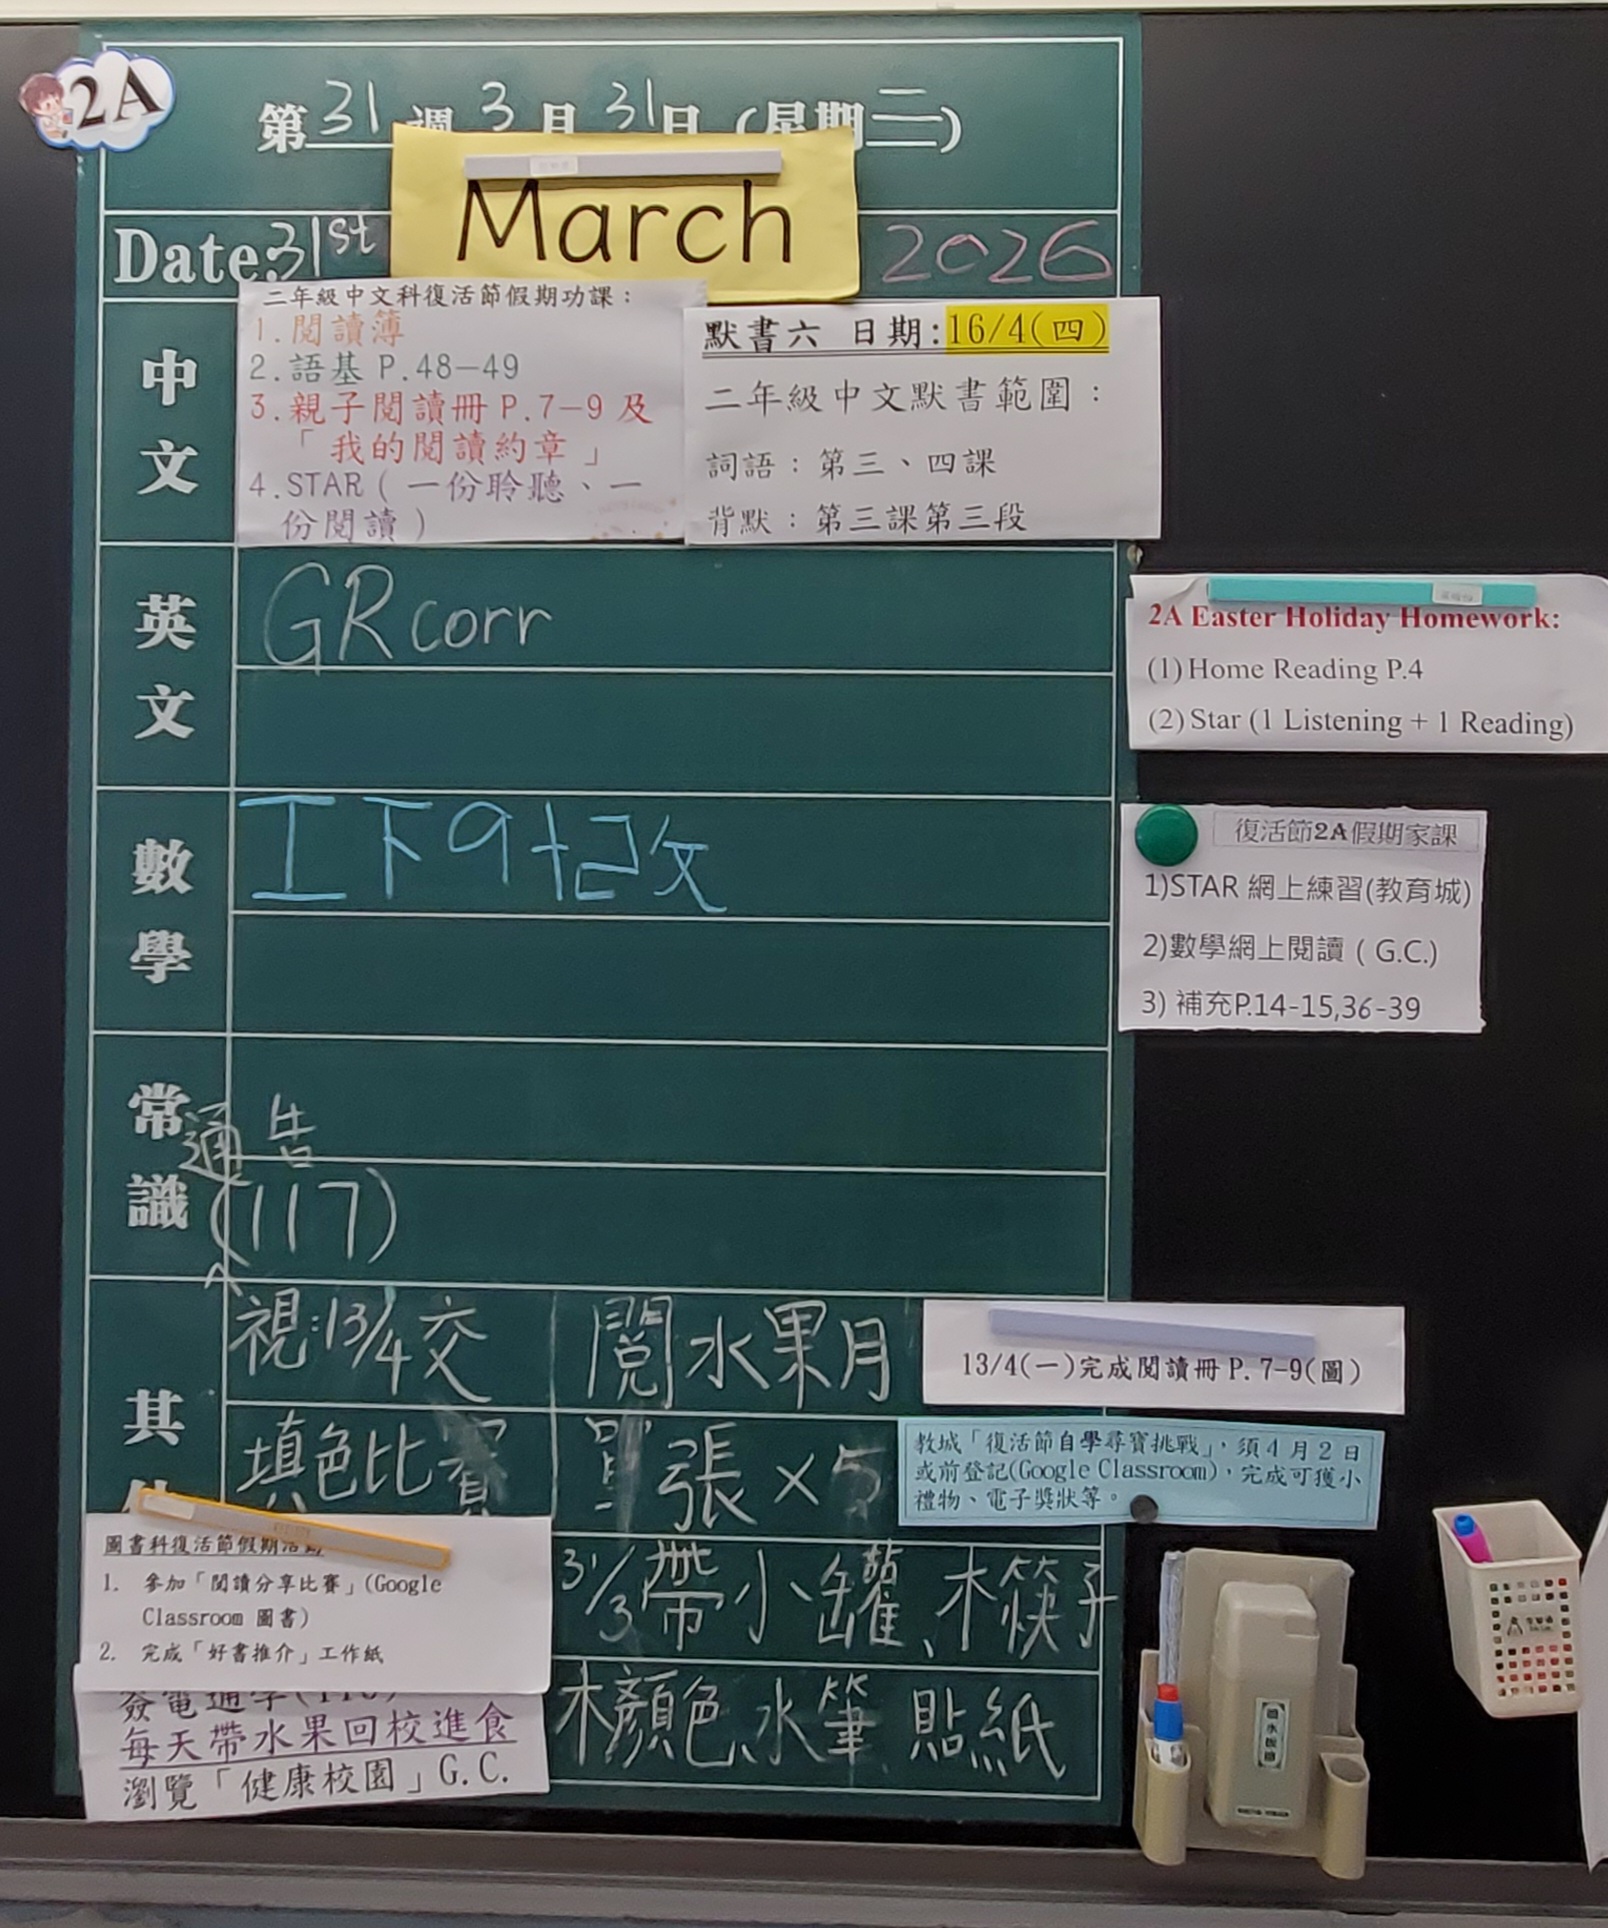 2A
第31週3月31日(星期二)
Date:31st March 2026
中文
二年級中文科復活節假期功課：
1.閱讀簿
2.語基 P.48-49
3.親子閱讀冊 P.7-9 及
「我的閱讀約章」
4.STAR(一份聆聽、一
份閱讀)
默書六 日期:16/4(四)
二年級中文默書範圍：
詞語：第三、四課
背默：第三課第三段
英文
GR corr
2A Easter Holiday Homework:
(1) Home Reading P.4
(2) Star (1 Listening + 1 Reading)
數學
工下9+改
復活節2A假期家課
1)STAR 網上練習(教育城)
2)數學網上閱讀 ( G.C.)
3) 補充P.14-15,36-39
常識
通告
(117)
其
視:13/4交
閱水果月
13/4(一)完成閱讀冊 P. 7-9(圖)
填色比賽
張×5
教城「復活節自學尋寶挑戰」，須4月2日
或前登記(Google Classroom)，完成可獲小
禮物、電子獎狀等。
圖書科復活節假期活動
1. 參加「閱讀分享比賽」(Google
Classroom 圖書)
2. 完成「好書推介」工作紙
31/3帶小罐、木筷子
木顏色、水筆、貼紙
每天帶水果回校進食
瀏覽「健康校園」G.C.